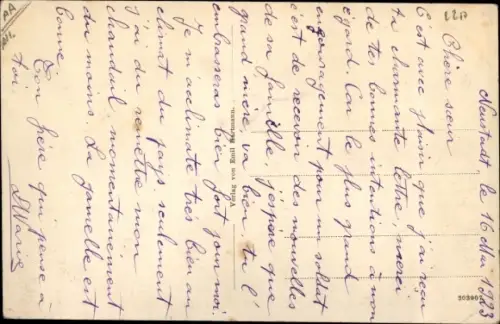 Neustadt, le 16 Mai 1923
Chère sœur
C'est avec plaisir que j'ai reçu
ta charmante lettre, merci
de tes bonnes intentions à mon
égard. Car le plus grand
encouragement pour un soldat
c'est de recevoir des nouvelles
de sa famille, j'espère que
grand mère, va bien, tu l'
embrasseras bien fort pour moi.
Je m'aclimate très bien au
climat du pays seulement
j'ai du remettre mon
chandail momentanément
du moins. La gamelle est
bonne.
Ton frère qui pense à
toi
Verlag von Emil